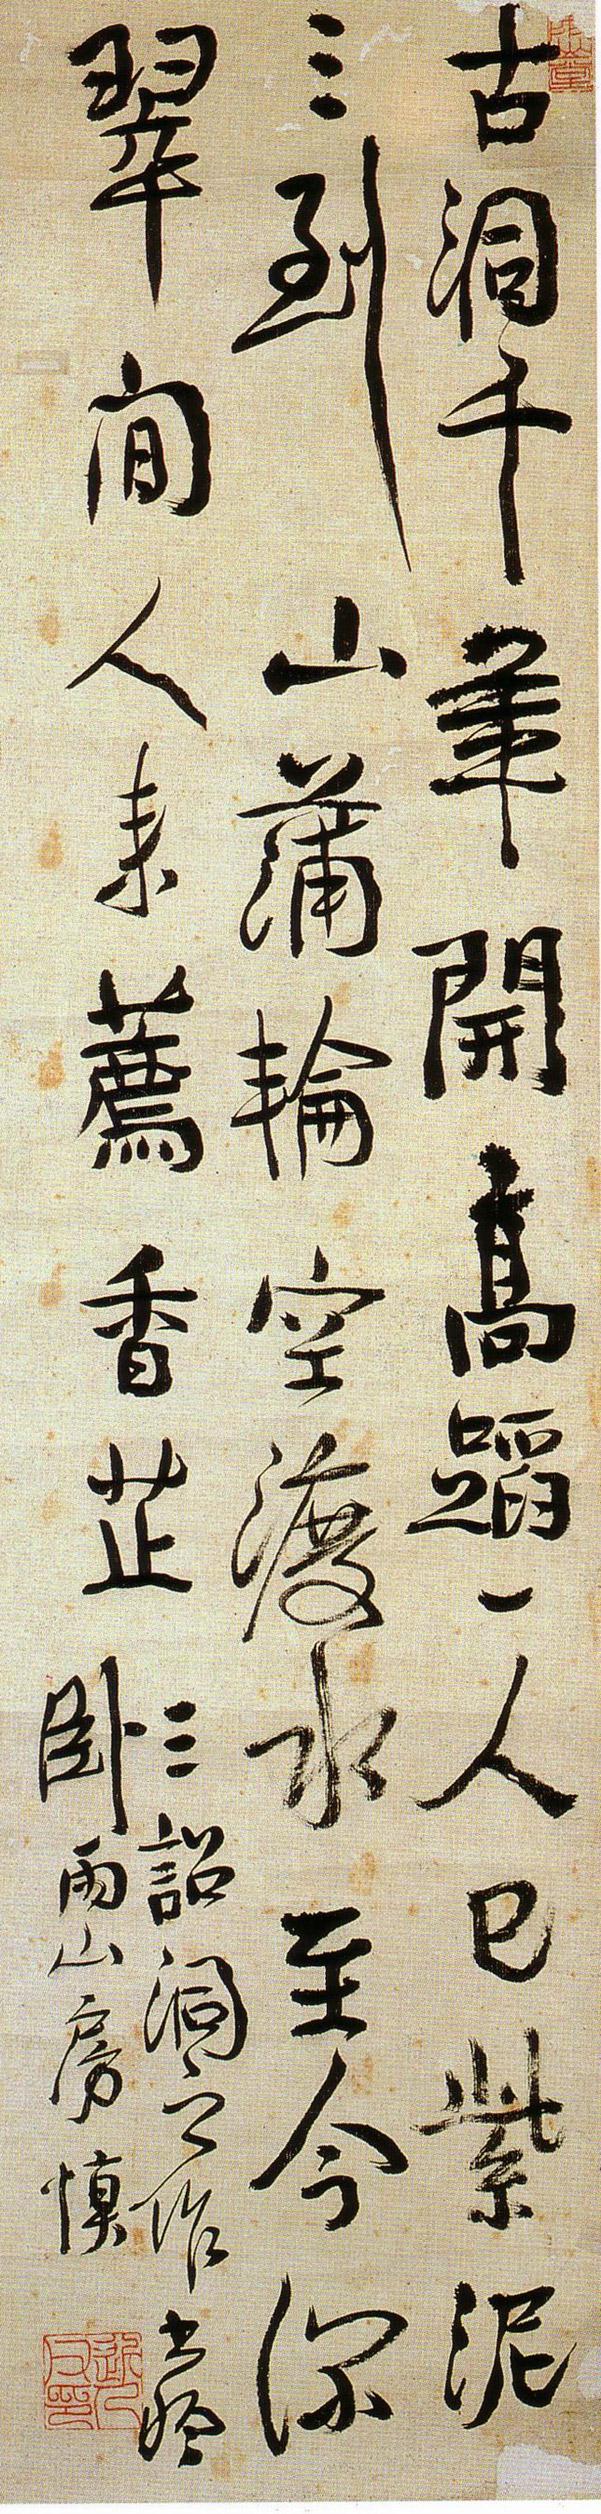 古洞千年開高蹈一人已紫泥
三到山蒲輪空渡水至今深
翠間人来薦香芷
三詔洞之作書
臥雨山房慎